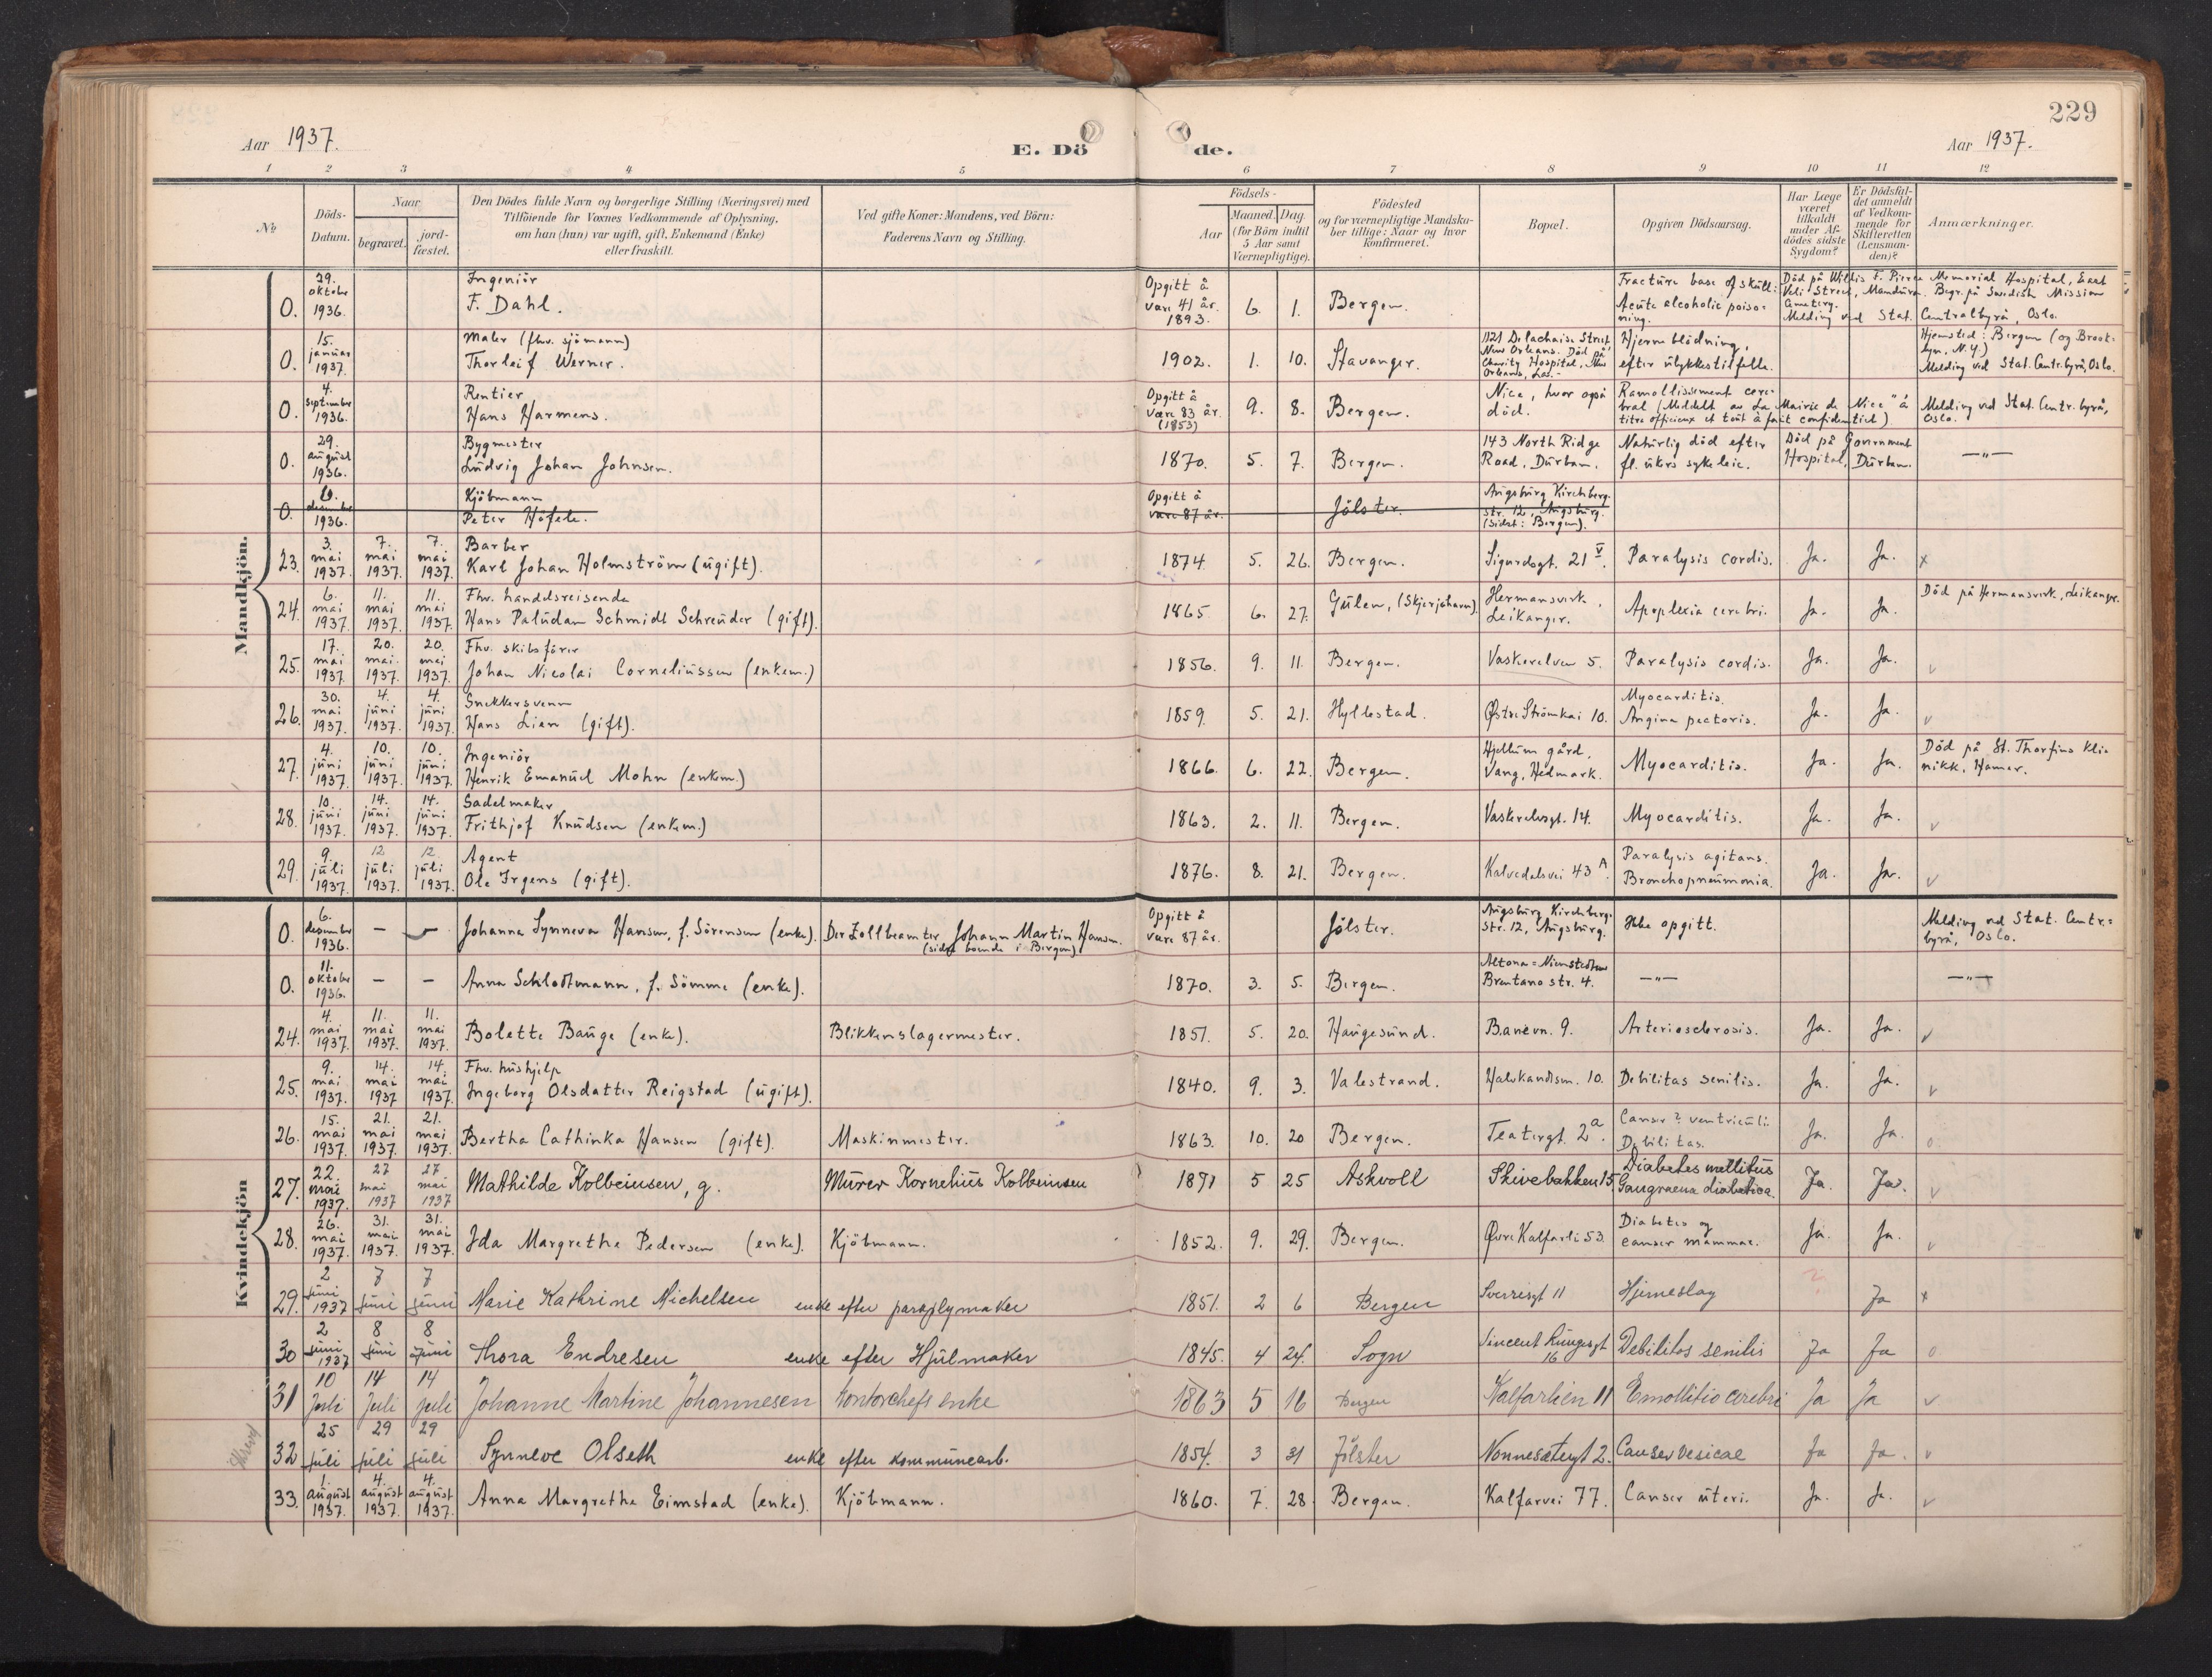 229
Aar 1937.
E. Dö de.
Aar 1937.
1 2 3 4 5 6 7 8 9 10 11 12
№
Döds-Datum.
Naar
begravet.
jord-fæstet.
Den Dödes fulde Navn og borgerlige Stilling (Næringsvei) med
Tilföiende for Voxnes Vedkommende af Oplysning,
om han (hun) var ugift, gift, Enkemand (Enke)
eller fraskilt.
Ved gifte Koner: Mandens, ved Börn:
Faderens Navn og Stilling.
Födsels-
Aar
Maaned. Dag.
(for Börn indtil
5 Aar samt
Værnepligtige).
Födested
og for værnepligtige Mandska-
ber tillige: Naar og hvor
Konfirmeret.
Bopæl.
Opgiven Dödsaarsag.
Har Læge
været
tilkaldt
under Af-
dödes sidste
Sygdom?
Er Dödsfal-
det anmeldt
af Vedkom-
mende for
Skifteretten
(Lensman-
den)?
Anmærkninger.
Mandkjön.
0. 29. oktober 1936. Ingeniör F. Dahl. Opgitt å være 41 år. 1893. 6. 1. Bergen. Fracture base of skull: Acute alcoholic poiso=ning. Död på Willis F. Pierce Memorial Hospital, East Street, Begr. på Swedish Mission Cemetery. Melding ved Stat. Centralbyrå, Oslo.
0. 15. januar 1937. Maler (fhv. sjömann) Thorleif Werner. 1902. 1. 10. Stavanger. 1121 Delachaise Street New Orleans. Död på Charity Hospital, New Orleans, La.- Hjerneblödning, efter ulykkestilfelle. Hjemsted: Bergen (og Brook=lyn, N.Y.) Melding ved Stat. Centr.byrå, Oslo.
0. 4. september 1936. Rentier Hans Harmens. Opgitt å være 83 år. (1853) 9. 8. Bergen. Nice, hvor også död. Ramollissement cere=bral (Meddelt av La Mairie de Nice "à titre officieux et tout à fait confidentiel). Melding ved Stat. Centr.byrå, Oslo.
0. 29. august 1936. Bygmester Ludvig Johan Johnsen. 1870. 5. 7. Bergen. 143 North Ridge Road, Durban. Naturlig död efter fl. ukers sykeleie. Död på Government Hospital, Durban. —"—
0. 6. desember 1936. Kjöbmann Peter Höfele. Opgitt å være 87 år. Jölster. Augsburg Kirchberg. str. 12, Augsburg. (sidst: Bergen).
23. 3. mai 1937. 7. mai 1937. 7. mai 1937. Barber Karl Johan Holmström (ugift). 1874. 5. 26. Bergen. Sigurdsgt. 21 V. Paralysis cordis. Ja. Ja. x
24. 6. mai 1937. 11. mai 1937. 11. mai 1937. Fhv. handelsreisende Hans Paludan Schmidt Schreuder (gift). 1865. 6. 27. Gulen, (Skjerjehavn). Hermansverk, Leikanger. Apoplexia cerebri. Ja. Ja. Död på Hermansverk, Leikanger.
25. 17. mai 1937. 20. mai 1937. 20. mai 1937. Fhv. skibsförer Johan Nicolai Corneliussen (enkem.) 1856. 9. 11. Bergen. Vaskerelven 5. Paralysis cordis. Ja. Ja. v
26. 30. mai 1937. 4. juni 1937. 4. juni 1937. Snekkersvenn Hans Lien (gift). 1859. 5. 21. Hyllestad. Østre Strömkai 10. Myocarditis. Angina pectoris. Ja. Ja. v
27. 4. juni 1937. 10. juni 1937. 10. juni 1937. Ingeniör Henrik Emanuel Mohn (enkem.) 1866. 6. 22. Bergen. Hjellum gård, Vang, Hedmark. Myocarditis. Ja. Ja. Död på St. Thorfins kli=nikk, Hamar.
28. 10. juni 1937. 14. juni 1937. 14. juni 1937. Sadelmaker Frithjof Knudsen (enkem.) 1863. 2. 11. Bergen. Vaskerelvsgt. 14. Myocarditis. Ja. Ja. v
29. 9. juli 1937. 12. juli 1937. 12. juli 1937. Agent Ole Irgens (gift). 1876. 8. 21. Bergen. Kalvedalsvei 43 A. Paralysis agitans. Bronchopneumonia. Ja. Ja. v
Kvindekjön
0. 6. desember 1936. — — Johanna Synneva Hansen, f. Sörensen (enke). Der Zollbeamter Johann Martin Hansen. (sidst boende i Bergen) Opgitt å være 87 år. Jölster. Augsburg Kirchberg. Str. 12, Augsburg. Ikke opgitt. Melding ved Stat. Centr.=byrå, Oslo.
0. 11. oktober 1936. — — Anna Schlottmann, f. Sömme (enke). 1870. 3. 5. Bergen. Altona=Nienstedten Brentano str. 4. —"— —"—
24. 4. mai 1937. 11. mai 1937. 11. mai 1937. Bolette Bauge (enke). Blikkenslagermester. 1851. 5. 20. Haugesund. Banevn. 9. Arteriosclerosis. Ja. Ja. v
25. 9. mai 1937. 14. mai 1937 14. mai 1937. Fhv. hushjelp Ingeborg Olsdatter Reigstad (ugift). 1840. 9. 3. Valestrand. Halvkandsm. 10. Debilitas senilis. Ja. Ja. v
26. 15. mai 1937. 21. mai 1937. 21. mai 1937. Bertha Cathinka Hansen (gift). Maskinmester. 1863. 10. 20 Bergen. Teatergt. 2 a. Canser? ventriculi. Debilitas. Ja. Ja. o
27. 22. mai 1937. 27 mai 1937 27 mai 1937 Mathilde Kolbeinsen, g. Murer Kornelius Kolbeinsen 1871 5 25 Askvoll Skivebakken 15. Diabetes mellitus Gangraena diabetica. Ja. Ja. v
28. 26. mai 1937. 31. mai 1937. 31. mai 1937. Ida Margrethe Pedersen (enke). Kjöbmann. 1852. 9. 29. Bergen. Øvre Kalfarli 53. Diabetes og canser mammae. Ja. Ja. v
29. 2 juni 1937 7 juni 7 juni Marie Kathrine Michelsen enke efter paraplymaker 1851. 2 6 Bergen Sverresgt 11 Hjerneslag ? Ja x
30 2 juni 1937 8 juni 8 juni Thora Endresen enke efter Hjulmaker 1845. 4 24. Sogn Vincent Lungesgt 16 Debilitas senilis Ja Ja o
31 10 Juli 14 Juli 14 juli Johanne Martine Johannesen kontorchefs enke 1863 5 16 Bergen Kalfarlien 11 Emollitio cerebri Ja Ja v
32 25 juli 29 juli 29 juli Synneve Olseth enke efter kommunearb. 1854. 3 31 Jölster Nonnesetergt 2. Canser vesicae Ja Ja. v
33. 1. august 1937. 4. august 1937. 4. august 1937. Anna Margrethe Eimstad (enke). Kjöbmann. 1860. 7. 28. Bergen. Kalfarvei 77. Canser uteri. Ja. Ja. v